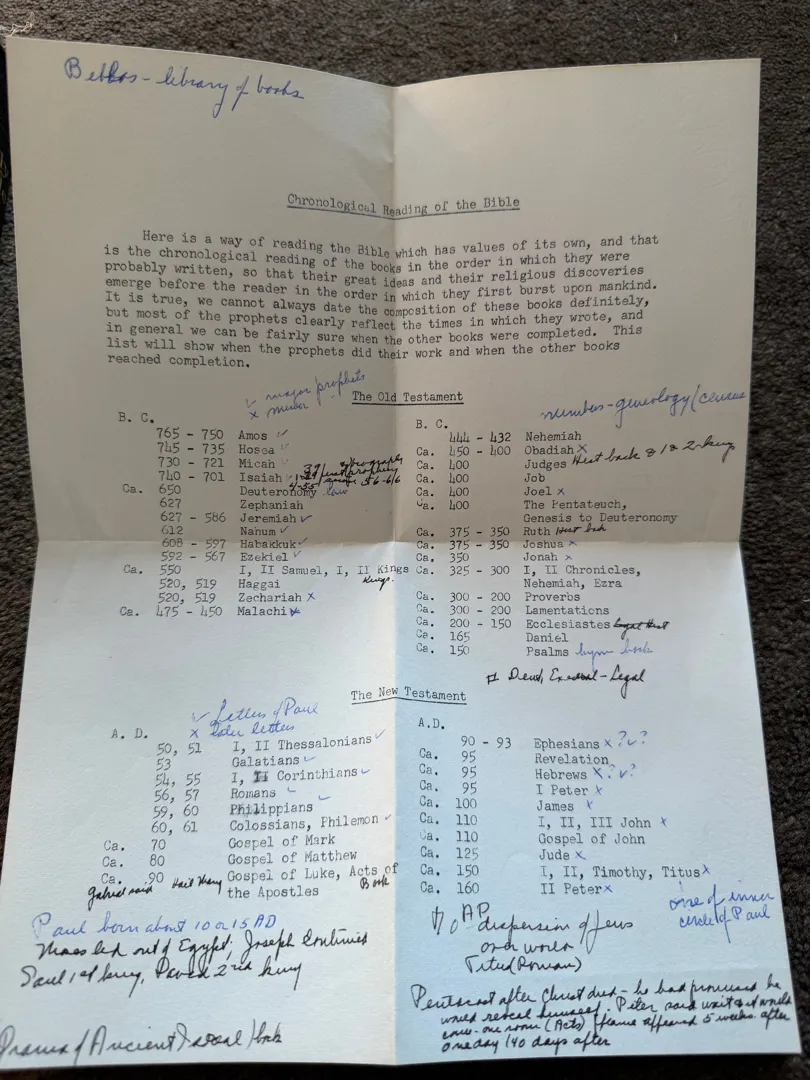 Beblos - library of books
Chronological Reading of the Bible
Here is a way of reading the Bible which has values of its own, and that
is the chronological reading of the books in the order in which they were
probably written, so that their great ideas and their religious discoveries
emerge before the reader in the order in which they first burst upon mankind.
It is true, we cannot always date the composition of these books definitely,
but most of the prophets clearly reflect the times in which they wrote, and
in general we can be fairly sure when the other books were completed. This
list will show when the prophets did their work and when the other books
reached completion.
✓ major prophets
x minor
The Old Testament
B. C.
765 - 750 Amos ✓
745 - 735 Hosea ✓
730 - 721 Micah ✓
740 - 701 Isaiah
Ca. 650 Deuteronomy law
627 Zephaniah
627 - 586 Jeremiah ✓
612 Nahum ✓
608 - 597 Habakkuk ✓
592 - 567 Ezekiel ✓
Ca. 550 I, II Samuel, I, II Kings
Kings.
520, 519 Haggai
520, 519 Zechariah x
Ca. 475 - 450 Malachi x
numbers - geneology/census
B. C.
444 - 432 Nehemiah
Ca. 450 - 400 Obadiah x
Ca. 400 Judges Hist back 8 1 & 2 King
Ca. 400 Job
Ca. 400 Joel x
Ca. 400 The Pentateuch,
Genesis to Deuteronomy
Ca. 375 - 350 Ruth Hist bk
Ca. 375 - 350 Joshua x
Ca. 350 Jonah x
Ca. 325 - 300 I, II Chronicles,
Nehemiah, Ezra
Ca. 300 - 200 Proverbs
Ca. 300 - 200 Lamentations
Ca. 200 - 150 Ecclesiastes
Ca. 165 Daniel
Ca. 150 Psalms hymn book
- Legal
The New Testament
✓ Letters of Paul
x later letters
A. D.
50, 51 I, II Thessalonians ✓
53 Galatians ✓
54, 55 I, II Corinthians ✓
56, 57 Romans ✓
59, 60 Philippians
60, 61 Colossians, Philemon ✓
Ca. 70 Gospel of Mark
Ca. 80 Gospel of Matthew
Ca. 90 Gospel of Luke, Acts of
the Apostles Book
Gabriel said Hail Mary
A.D.
90 - 93 Ephesians x ? ✓ ?
Ca. 95 Revelation
Ca. 95 Hebrews x ? ✓ ?
Ca. 95 I Peter x
Ca. 100 James x
Ca. 110 I, II, III John x
Ca. 110 Gospel of John
Ca. 125 Jude x
Ca. 150 I, II, Timothy, Titus x
Ca. 160 II Peter x
one of inner
circle of Paul
Paul born about 10 or 15 AD
Moses led out of Egypt; Joseph continued
Saul 1st king, David 2nd king
Drama of Ancient Israel / book
70 AD dispersion of Jews
over world
Titus (Roman)
Pentecost after Christ died - he had promised he
would reveal himself. Peter said wait & it would
come - one room (Acts) flame appeared 5 weeks after
one day / 40 days after